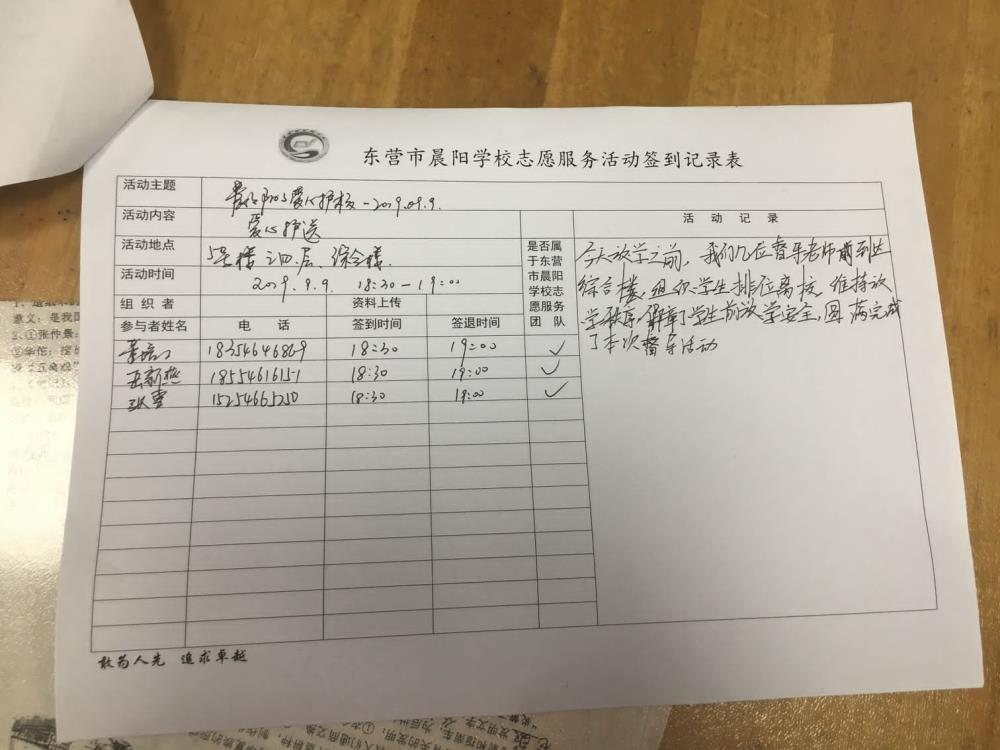 东营市晨阳学校志愿服务活动签到记录表
活动主题 爱心护校-2019.09.9.
活动内容 爱心护送
活动地点 5号楼三四层、综合楼
活动时间 2019.9.9. 18:30-19:00
组织者 资料上传
参与者姓名 电话 签到时间 签退时间
是否属
于东营
市晨阳
学校志
愿服务
团队
18354646869 18:30 19:00 ✓
岳新燕 18554616151 18:30 19:00 ✓
张雪 15254665250 18:30 19:00 ✓
活动记录
今天放学之前,我们几位督导老师前到达
综合楼,组织学生排位离校,维持放
学秩序,保障了学生放学安全,圆满完成
了本次督导活动
敢为人先 追求卓越